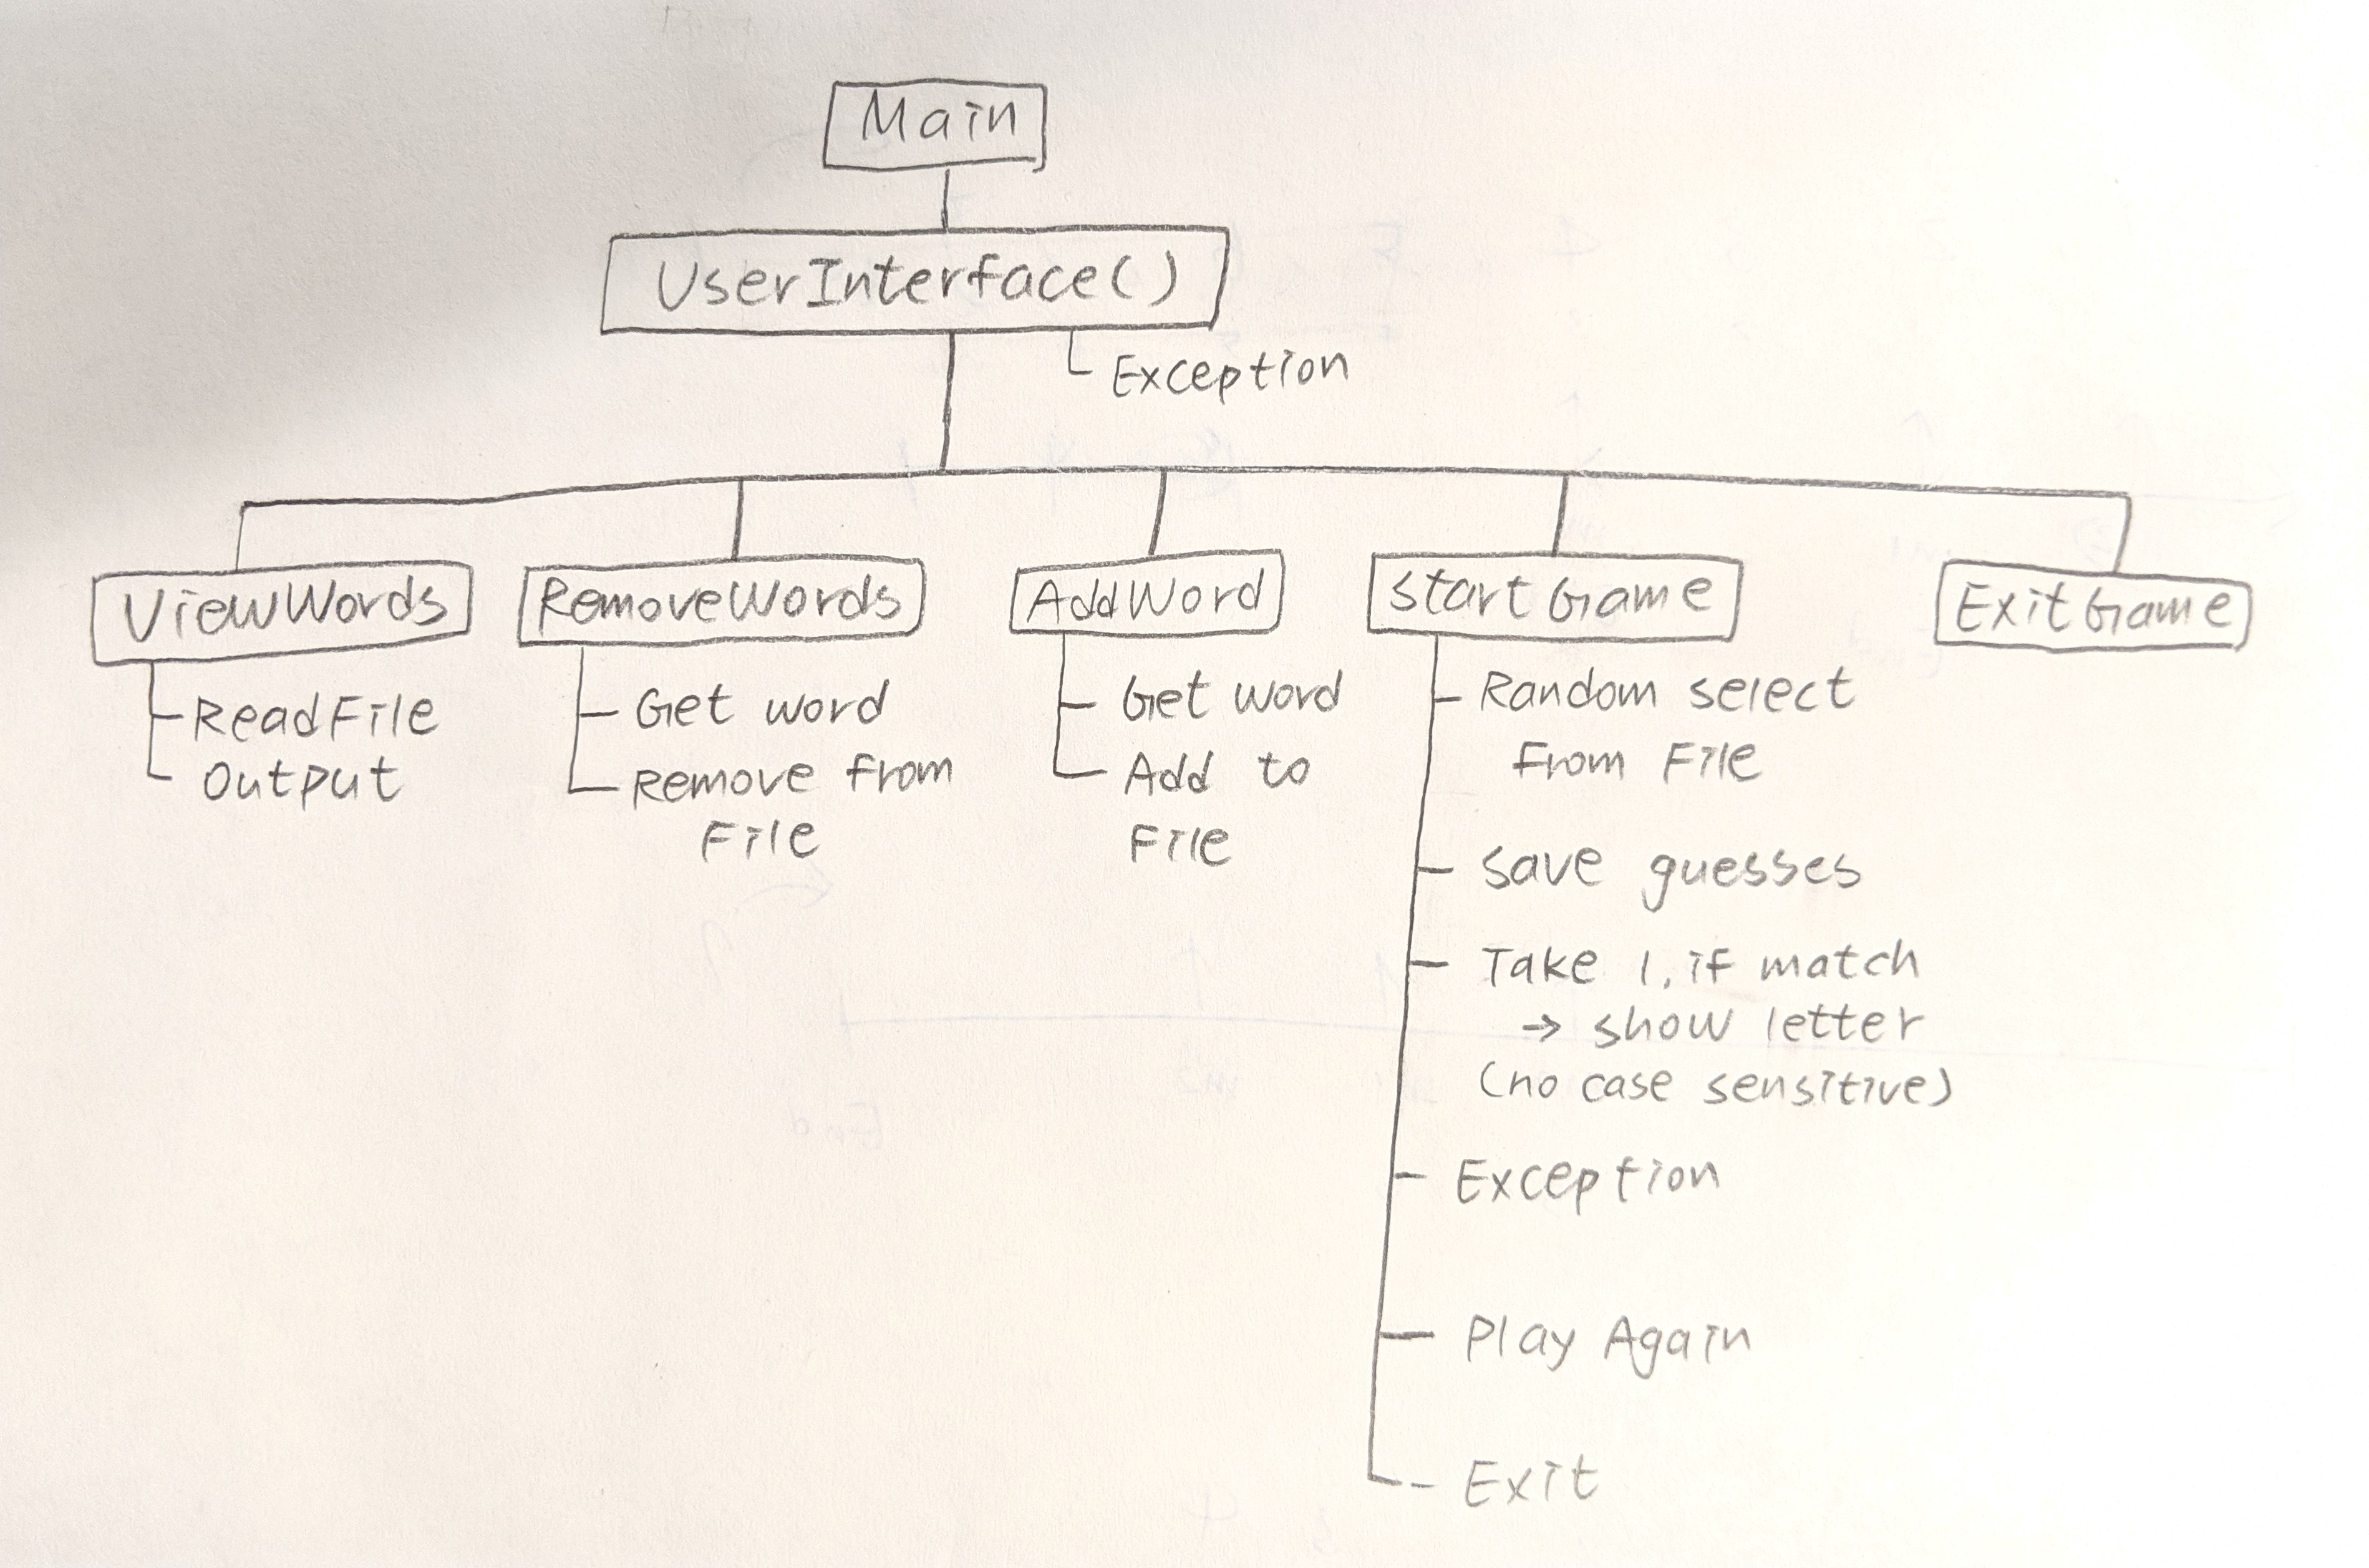 Main
UserInterface()
Exception
ViewWords
ReadFile
Output
RemoveWords
Get word
Remove from
File
AddWord
Get word
Add to
File
StartGame
Random select
from File
Save guesses
Take 1, if match
→ show letter
(no case sensitive)
Exception
Play Again
Exit
ExitGame